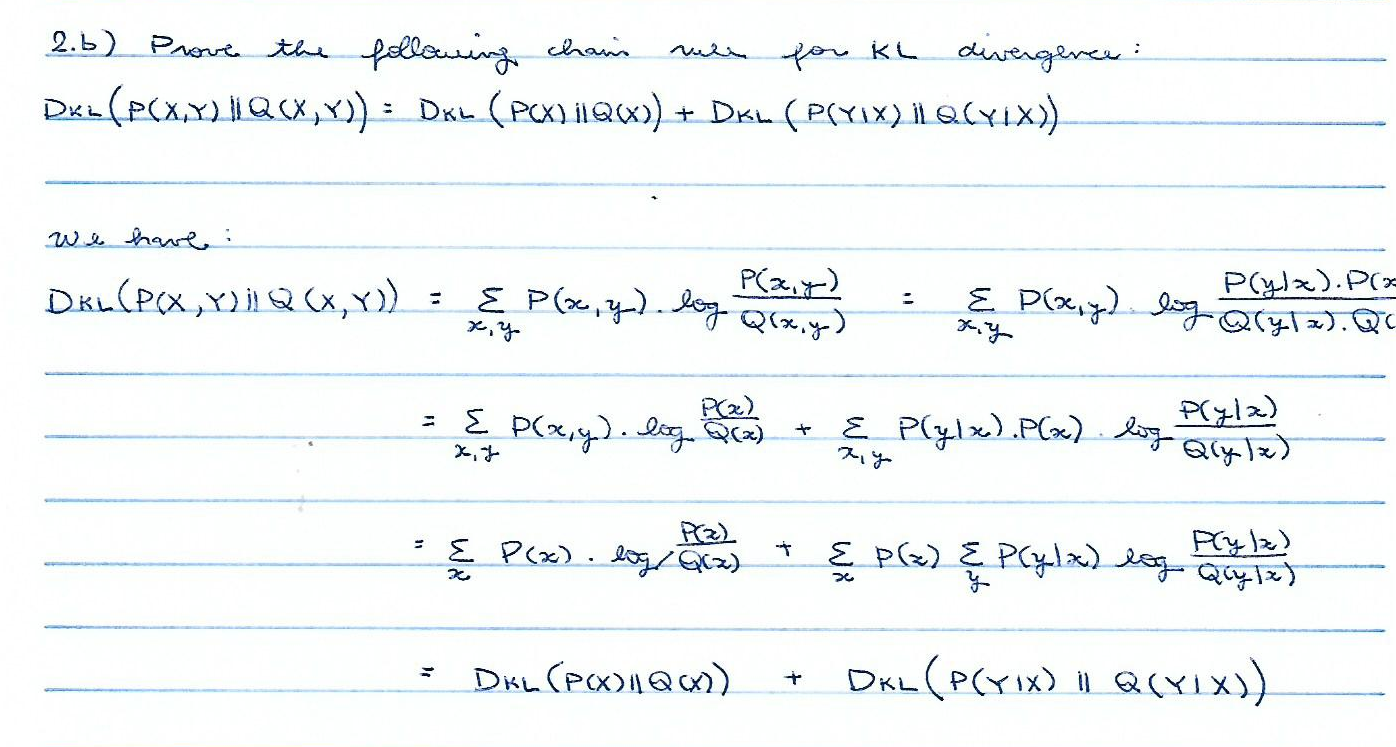 2.b) Prove the following chain rule for KL divergence:
DKL(P(X,Y)||Q(X,Y)) = DKL(P(X)||Q(X)) + DKL(P(Y|X)||Q(Y|X))
We have:
DKL(P(X,Y)||Q(X,Y)) = Σ_{x,y} P(x,y). log P(x,y)/Q(x,y) = Σ_{x,y} P(x,y). log P(y|x).P(x/Q(y|x).Q(
= Σ_{x,y} P(x,y). log P(x)/Q(x) + Σ_{x,y} P(y|x).P(x). log P(y|x)/Q(y|x)
= Σ_x P(x). log P(x)/Q(x) + Σ_x P(x) Σ_y P(y|x) log P(y|x)/Q(y|x)
= DKL(P(X)||Q(X)) + DKL(P(Y|X) || Q(Y|X))